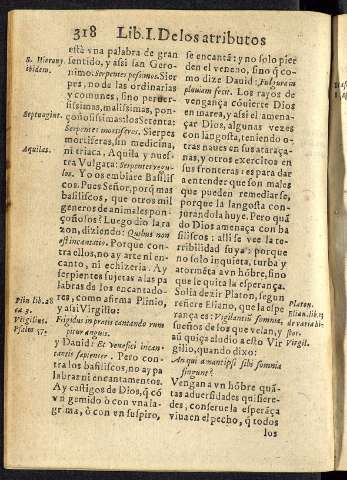 318 Lib. I. De los atributos
està vna palabra de gran
sentido, y assi san Gero-
nimo. Serpentes pessimos. Sier
pes, no de las ordinarias
y comunes, sino peruer-
tissimas, malissimas, pon-
çoñosissimas: los Setenta:
Serpentes mortiferos. Sierpes
mortiferas, sin medicina,
ni triaca, Aquila y nues-
tra Vulgata: Serpentes regu-
los. Yo os embiàre Basilis-
cos. Pues Señor, porq̃ mas
basiliscos, que otros mil
generos de animales pon-
çoñosos? Luego dio la ra
zon, diziendo: Quibus non
est incantatio. Porque con-
tra ellos, no ay arte ni en-
canto, ni echizeria. Ay
serpientes sujetas a las pa
labras de los encantado-
res, como afirma Plinio,
y assi Virgilio:
Frigidus in pratis cantando rum
pitur anguis.
y Dauid: Et venefici incan-
tantis sapienter. Pero con-
tra los basiliscos, no ay pa
labras ni encantamentos.
Ay castigos de Dios, q̃ cõ
vn gemido ò con vna la-
grima, ò con vn suspiro,
S. Hierony.
ibidem.
Septuagint.
Aquilas.
Plin lib. 28
ca. 3.
Virgilius.
Psalm 57.
se encantã: y no solo pier
den el veneno, sino q̃ co-
mo dize Dauid: Fulgura in
pluuiam fecit. Los rayos de
vengança cõuierte Dios
en marea, y assi el amena-
çar Dios, algunas vezes
con langosta, teniendo o-
tras naues en sus ataraça-
nas, y otros exercitos en
sus fronteras; es para dar
a entender que son males
que pueden remediarse,
porque la langosta con-
jurandola huye. Pero quã
do Dios amenaça con ba
siliscos: alli se vee la ter-
ribilidad suya: porque
no solo inquieta, turba y
atormẽta avn hõbre, sino
que le quita la esperança.
Solia dezir Platon, segun
refiere Eliano, que la espe
rança es: Vigilantis somnia,
sueños de los que velan, y
aũ quiça aludio a esto Vir
gilio, quando dixo:
An qui amant ipsi sibi somnia
fingunt?
Vengan a vn hõbre quã-
tas aduersidades quisiere-
des, conserue la esperãça
viua en el pecho, q̃ todos
los
Platon.
Elian. lib. 13
de varia his
tor.
Virgil.